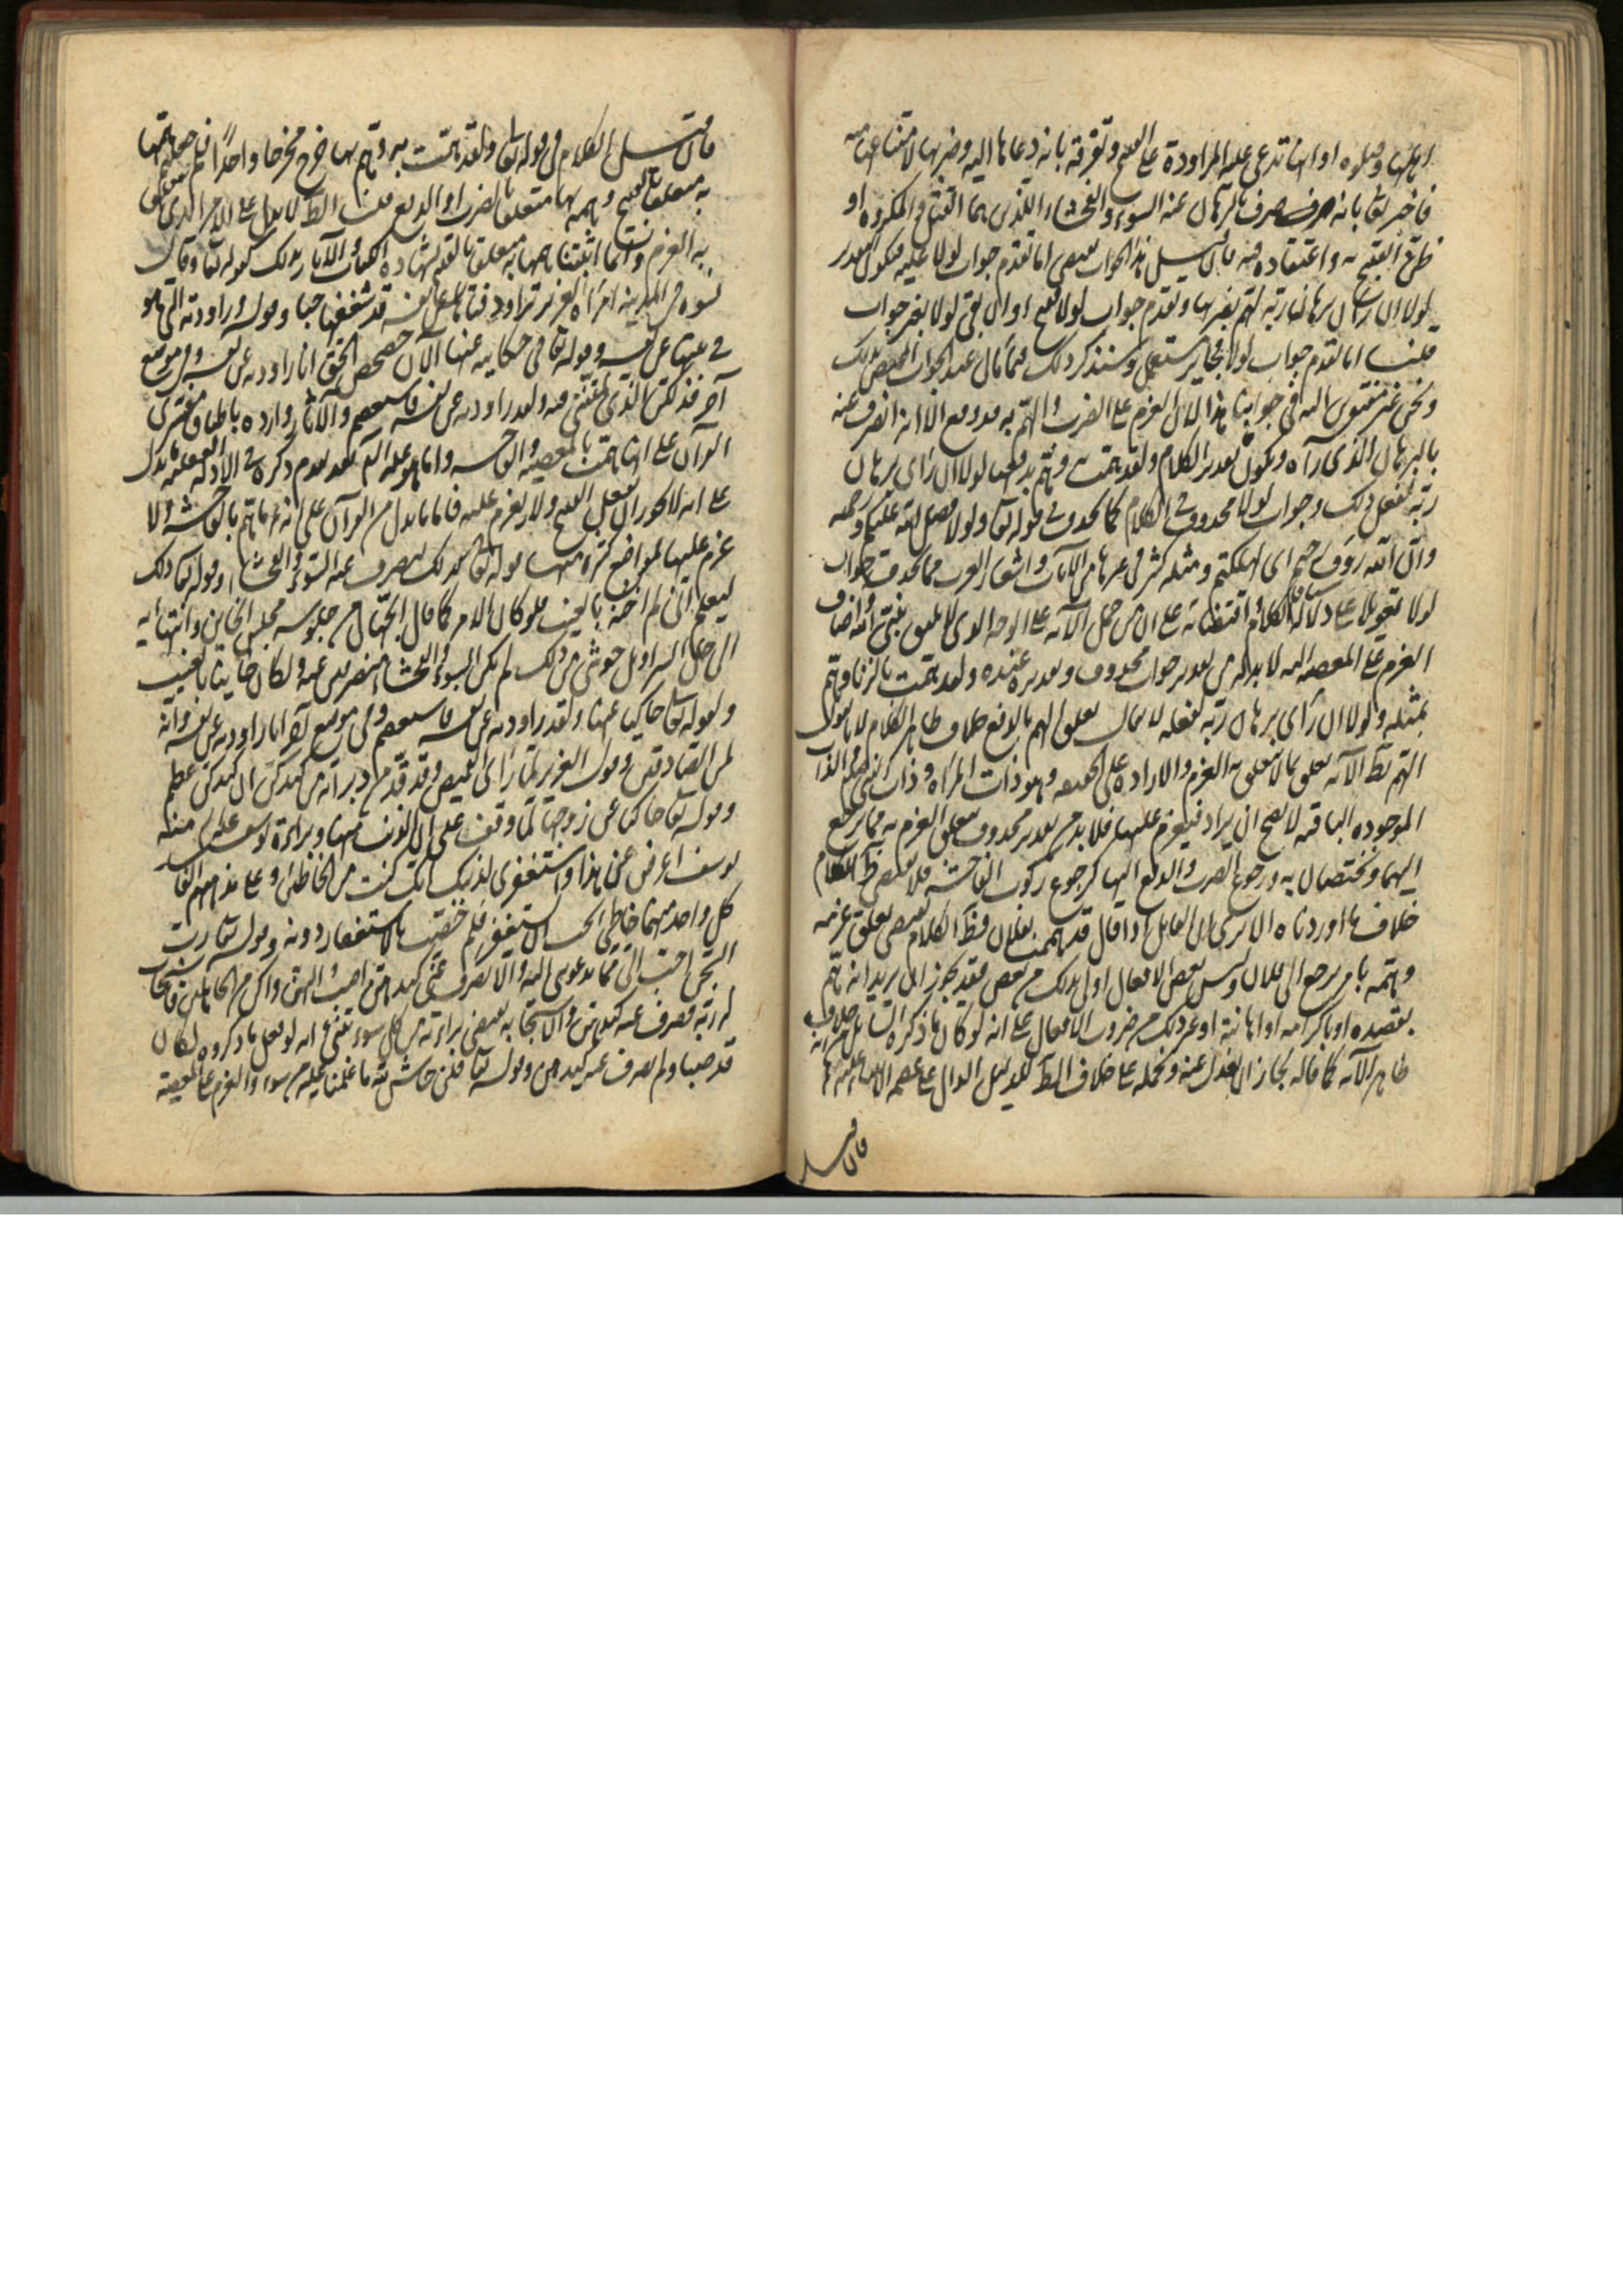 اهلها وقتلوه او انها تدعى عليه المراودة على القبيح وتقرفه بانه دعاها اليه وضربها لامتناعها منه
فاخبر تعالى بانه صرف بالبرهان عنه السوء والفحشاء اللذين هما القتل والمكروه او
ظن القبيح به واعتقاده فيه فان قيل هذا الجواب يقتضى ان يتقدم جواب لولا عليها فيكون التقدير
لولا ان راى برهان ربه لهم بضربها وتقدم جواب لولا قبيح او ان يبقى لولا بغير جواب
قلنا اما تقدم جواب لولا فجايز مستعمل وسنذكر ذلك فيما ياتى عند الجواب المختص بذلك
ونحن غير مفتقرين اليه فى جوابنا هذا لان العزم على الضرب والهم به قد وقع الا انه انصرف عنه
بالبرهان الذى رآه ويكون تقدير الكلام ولقد همت به وهم بدفعها لولا ان راى برهان
ربه لفعل ذلك وجواب لولا محذوف فى الكلام كما يحذف فى قوله تعالى ولولا فضل الله عليكم ورحمته
وان الله رؤف رحيم اى لهلكتم ومثله كثير فى غيرها من الآيات واشعار العرب مما يحذف جواب
لولا تعويلا على دلالة الكلام واقتضائه على ان من حمل الآية على الوجه الذى لا يليق بنبى الله واضاف
العزم على المعصية اليه لا بد له من تقدير جواب محذوف وتقديره عنده ولقد همت بالزنا وهم
بمثله ولولا ان راى برهان ربه لفعله لا يقال تعلق الهم بالدفع خلاف ظاهر الكلام لانا نقول
الهم بظ الآية تعلق بما لا يتعلق به العزم والارادة على الحقيقة وهو ذات المرأة وذات النبى عليه السلم والذات
الموجودة الباقية لا يصح ان يراد فيعزم عليها فلا بد من تقدير محذوف يتعلق العزم به مما يرجع
اليهما ويختصان به ورجوع الضرب والدفع اليها كرجوع ركوب الفاحشة فلا يقتضى ظ الكلام
خلاف ما اوردناه الا ترى ان القايل اذا قال قد هممت بفلان فظ الكلام يقتضى تعلق عزمه
وهمه بامر يرجع الى فلان وليس بعض الافعال اولى بذلك من بعض فقد يجوز ان يريد انه هم
بقصده او باكرامه او اهانته او غير ذلك من ضروب الافعال على انه لو كان ما ذكره السائل من انه خلاف
ظاهر الآية كما قاله لجاز ان نعدل عنه ونحمله على خلاف الظ للدليل الدال على عصمة الانبياء عليهم السلم
فان قيل
فان قيل الكلام فى قوله تعالى ولقد همت به وهم بها خرج مخرجا واحدا فلم جعلتم همها
به متعلقا بالقبيح وهمه بها متعلقا بالضرب او الدفع قلنا الظ لا يدل على الامر الذى تعلق
به العزم وانما اثبتنا همها به متعلقا بالقبيح لشهادة الكتاب والآثار بذلك كقوله تعالى وقال
نسوة فى المدينة امرأة العزيز تراود فتاها عن نفسه قد شغفها حبا وقوله وراودته التى هو
فى بيتها عن نفسه وقوله تعالى فى حكايته عنها الآن حصحص الحق انا راودته عن نفسه وفى موضع
آخر فذلكن الذى لمتننى فيه ولقد راودته عن نفسه فاستعصم والآثار واردة باطباق مفسرى
القرآن على انها همت بالمعصية والفاحشة واما هو عليه السلم فقد تقدم ذكره فى الادلة العقلية ما يدل
على انه لا يجوز ان يفعل القبيح ولا يعزم عليه فاما ما يدل من القرآن على انه ما هم بالفاحشة ولا
عزم عليها لمواضع كثيرة منها قوله تعالى كذلك لنصرف عنه السوء والفحشاء وقوله تعالى ذلك
ليعلم انى لم اخنه بالغيب فلو كان الامر كما قال الجهال من جلوسه مجلس الخاين وانتهائه
الى حل السراويل حوشى من ذلك لم يكن السوء والفحشاء منصرفين عنه ولكان خاينا بالغيب
وقوله تعالى حاكيا عنها ولقد راودته عن نفسه فاستعصم وفى موضع آخر انا راودته عن نفسه وانه
لمن الصادقين وقول العزيز لما راى القميص قد قد من دبر انه من كيدكن ان كيدكن عظيم
وقوله تعالى حاكيا عن زوجها لما وقف على ان الذنب منها وبراءة يوسف عليه السلم منه
يوسف اعرض عن هذا واستغفرى لذنبك انك كنت من الخاطئين وعلى مذهبهم الفاسد
كل واحد منهما خاطئ يجب ان يستغفر فلم خصت بالاستغفار دونه وقوله تعالى رب
السجن احب الى مما يدعوننى اليه والا تصرف عنى كيدهن اصب اليهن واكن من الجاهلين فاستجاب
له ربه فصرف عنه كيدهن والاستجابة تقتضى براءته من كل سوء وتنبئ انه لو فعل ما ذكروه لكان
قد صبا ولم يصرف عنه كيدهن وقوله تعالى قلن حاش لله ما علمنا عليه من سوء والعزم على المعصية